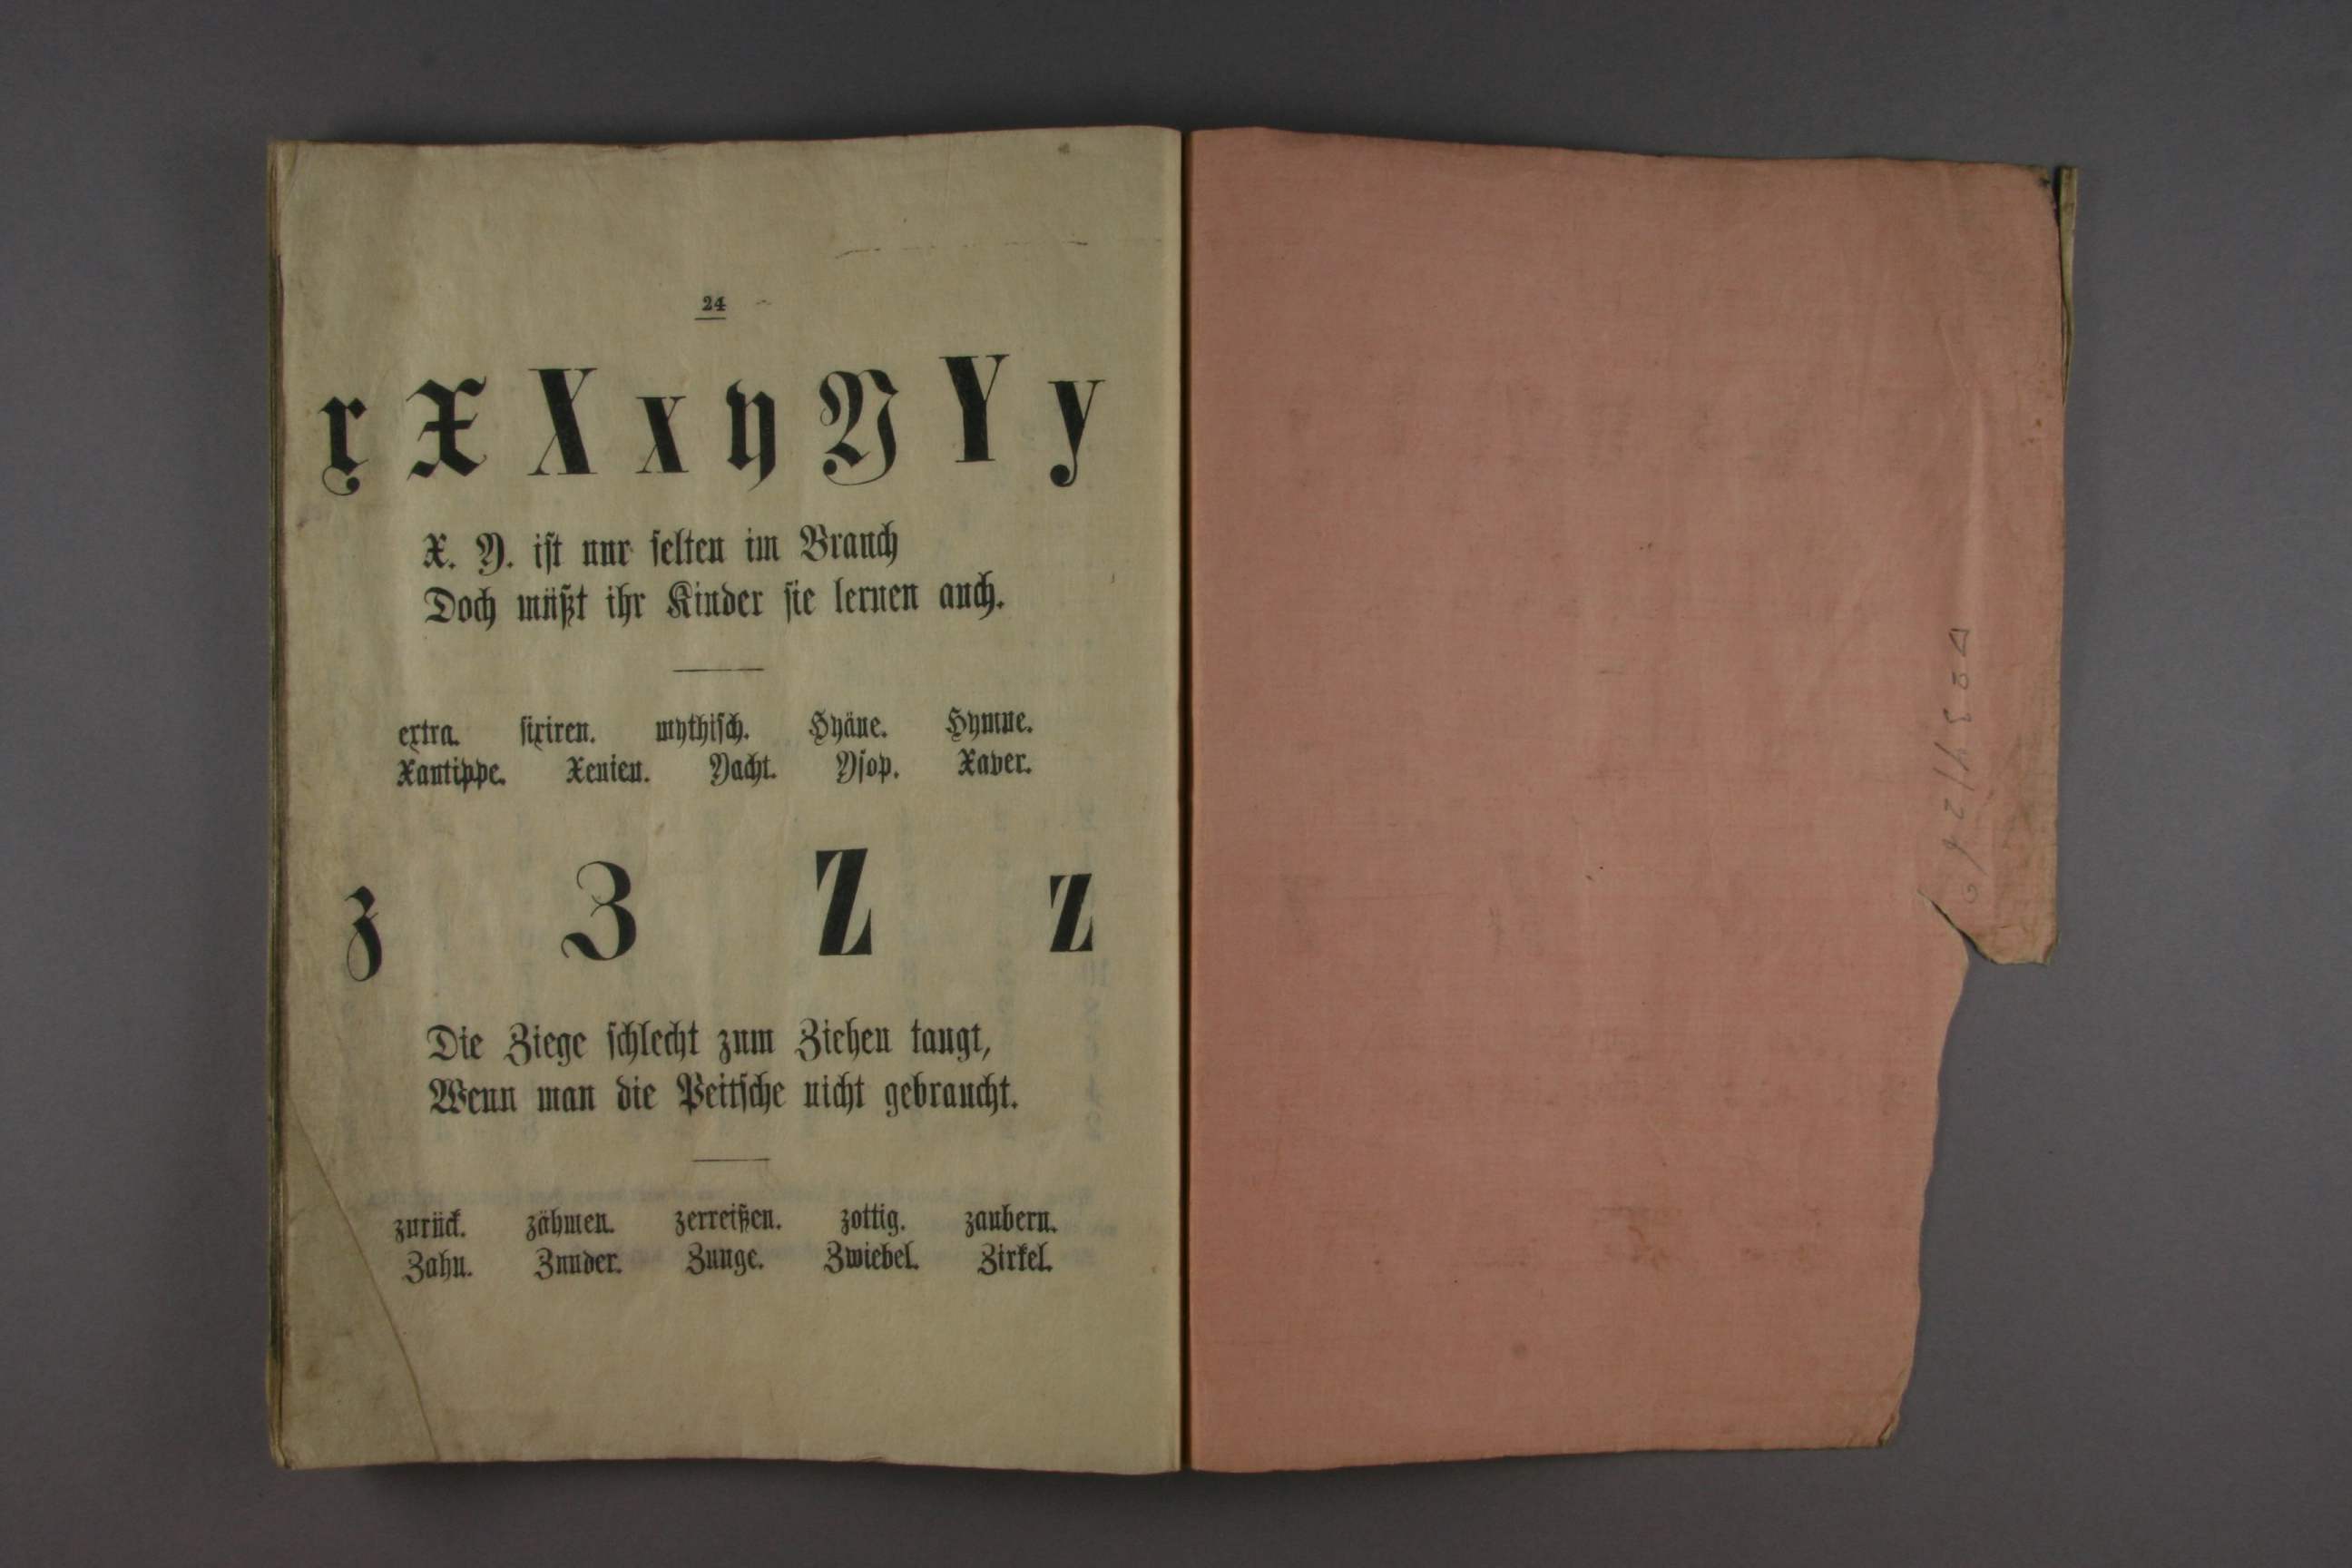 24
x X X x y Y Y y
X. Y. iſt nur ſelten im Brauch
Doch müßt ihr Kinder ſie lernen auch.
extra. fixiren. mythiſch. Hyäne. Hymne.
Xantippe. Xenien. Yacht. Yſop. Xaver.
z Z Z z
Die Ziege ſchlecht zum Ziehen taugt,
Wenn man die Peitſche nicht gebraucht.
zurück. zähmen. zerreißen. zottig. zaubern.
Zahn. Zunder. Zunge. Zwiebel. Zirkel.